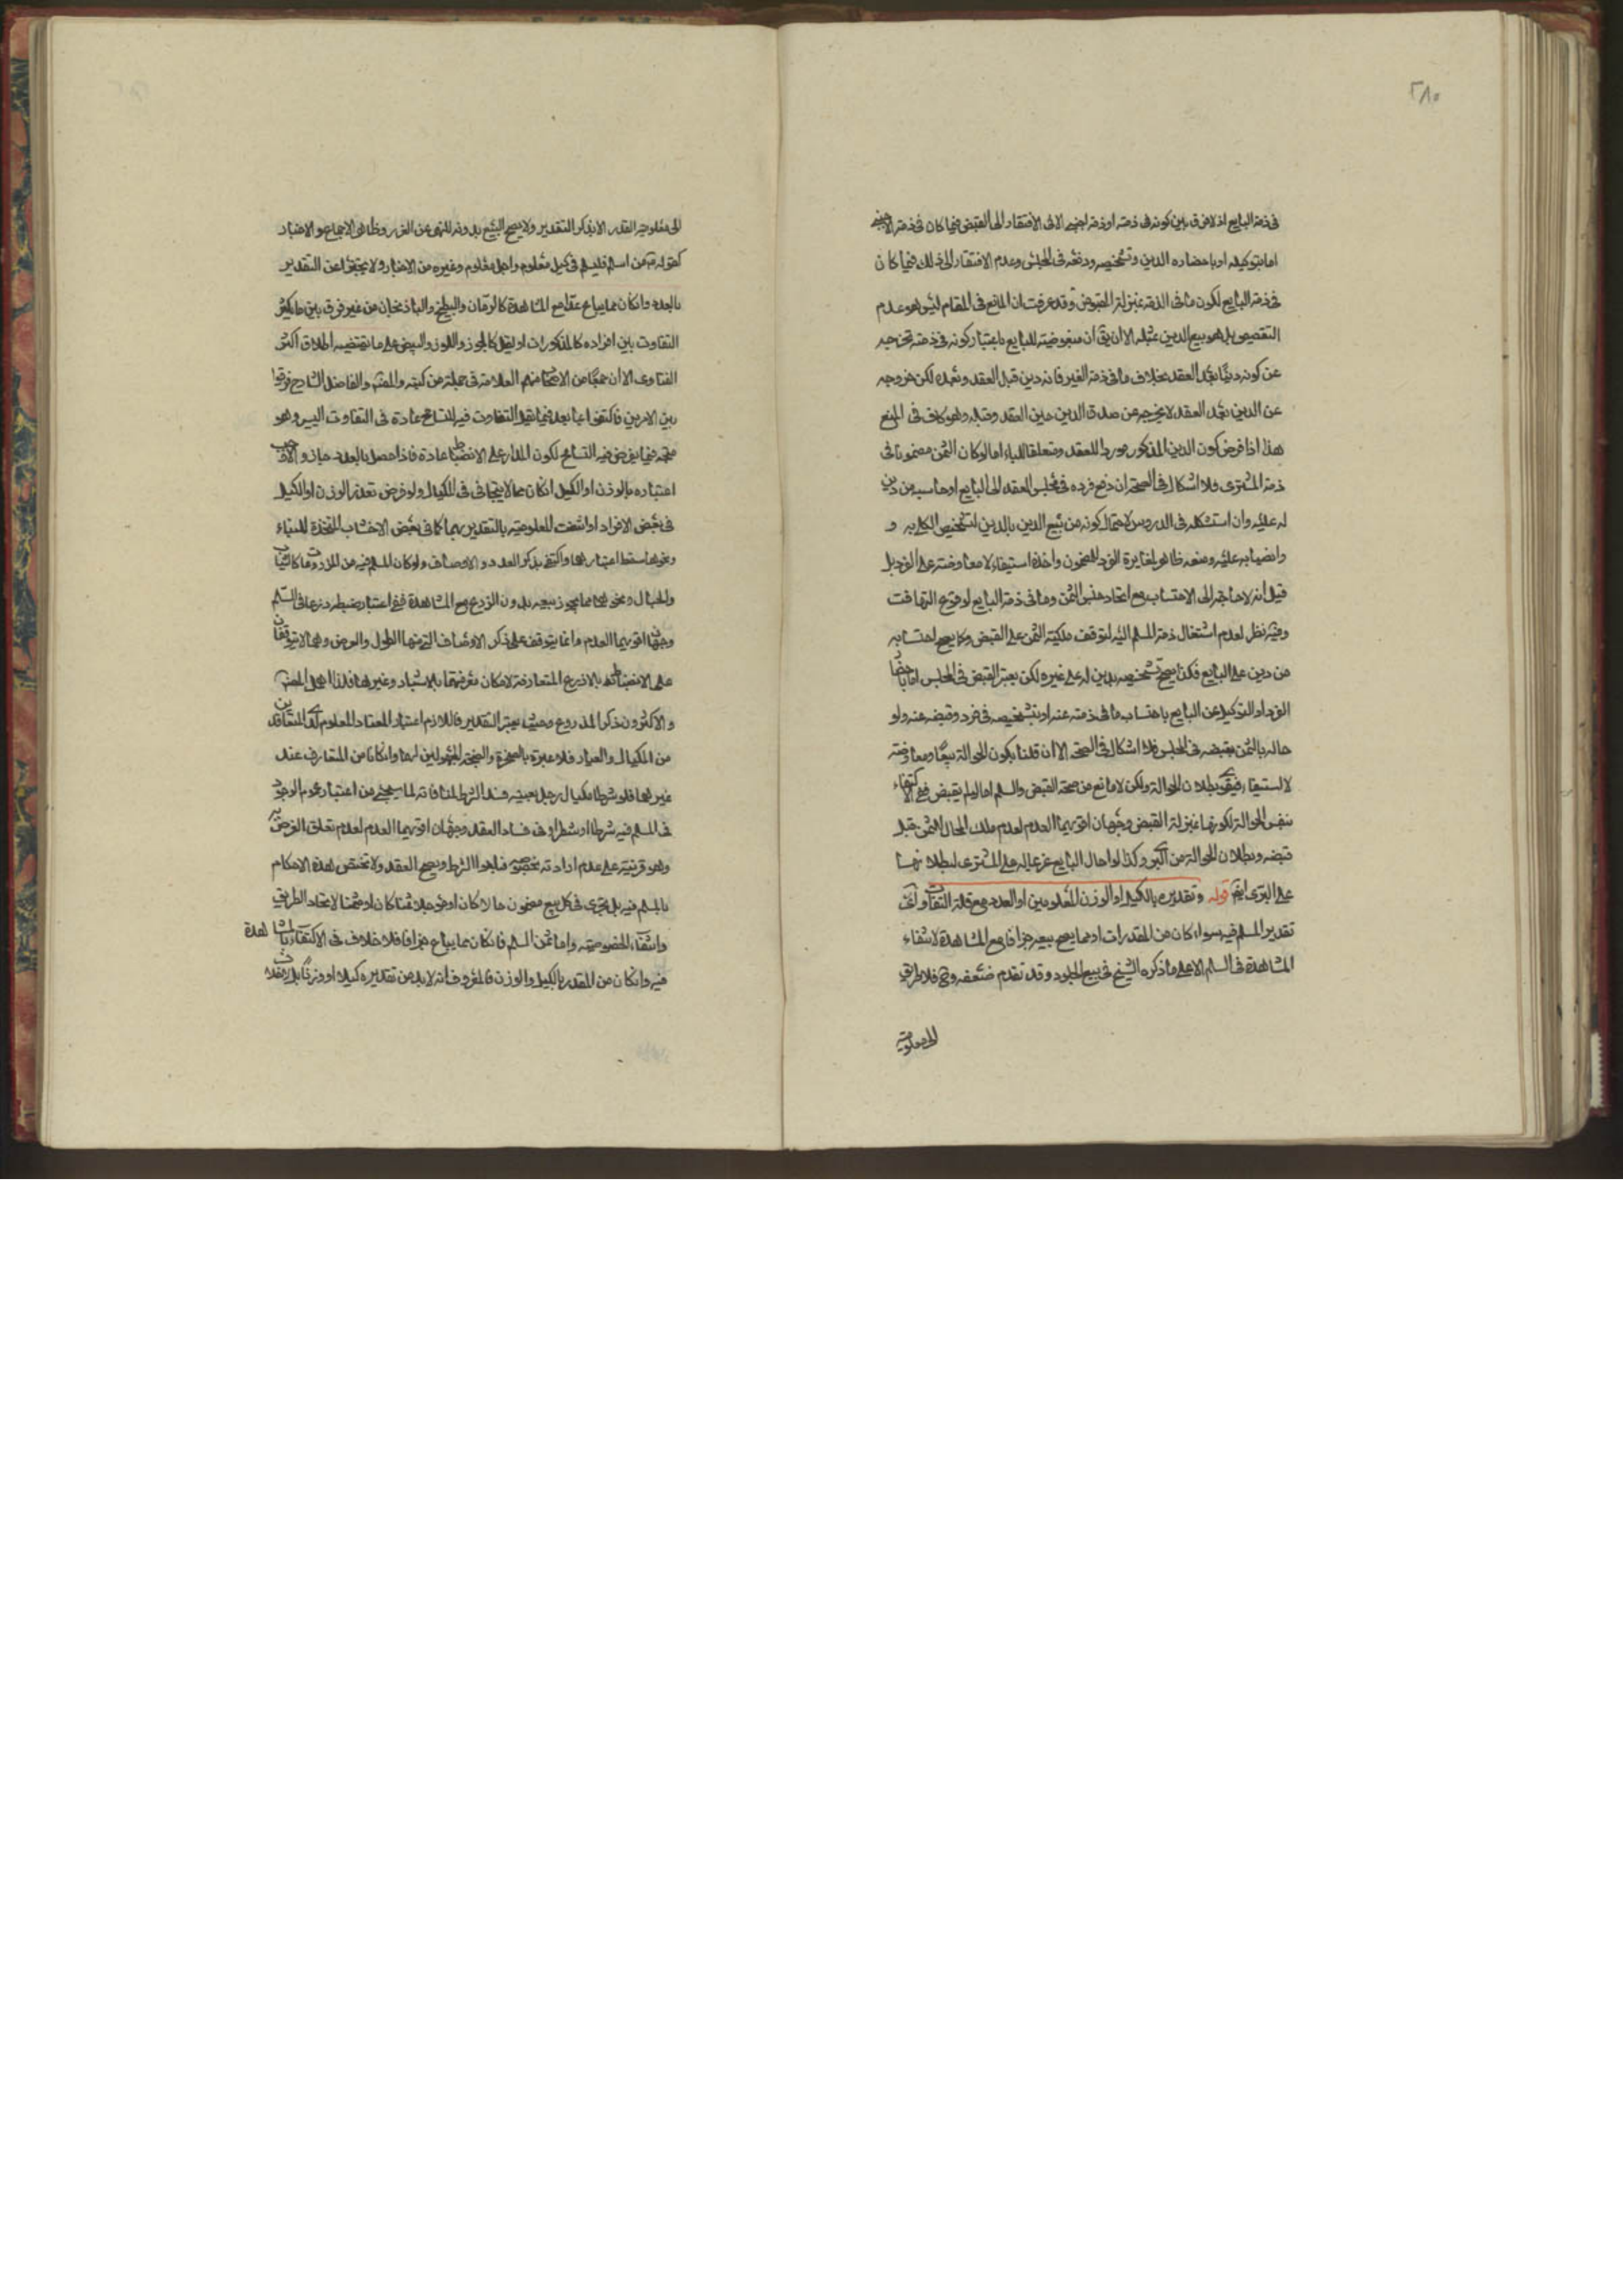 ٢٨٠
فى ذمة البايع اذ لا فرق بين كونه فى ذمته او ذمة اجنبى الا فى الافتقار الى القبض فيما كان فى ذمة الاجنبى
اما بتوكيله او باحضاره الدين وتشخيصه ودفعه فى المجلس وعدم الافتقار الى ذلك فيما كان
فى ذمة البايع لكون ما فى الذمة بمنزلة المقبوض وقد عرفت ان المانع فى المقام ليس هو عدم
التقصيص بل هو بيع الدين بمثله الا ان يق ان مبغوضيته للبايع باعتبار كونه فى ذمته تخرجه
عن كونه دينا بعد العقد بخلاف ما فى ذمة الغير فانه دين قبل العقد وبعده لكن خروجه
عن الدين بعد العقد لا يخرجه عن صدق الدين حين العقد وقبله وهو كاف فى المنع
هذا اذا فرض كون الدين المذكور موردا للعقد ومتعلقا للباء اما لو كان الثمن مضمونا فى
ذمة المشترى فلا اشكال فى الصحة ان دفع فرده فى مجلس العقد الى البايع او حاسبه من دين
له عليه وان استشكله فى الدروس لاحتمال كونه من بيع الدين بالدين لتشخيص الكلى به و
وانصبابه عليه ومنعه ظاهر لمغايرة الفرد للمضمون واخذه استيفاء لا معاوضة على الفرد بل
قيل انه لا حاجة الى الاحتساب مع اتحاد جنس الثمن وما فى ذمة البايع لوقوع التهافت
وفيه نظر لعدم اشتغال ذمة المسلم اليه لتوقف ملكية الثمن على القبض وكما يصح احتسابه
من دين على البايع فكذا يصح تشخيصه بدين له على غيره لكن يعتبر القبض فى المجلس اما باحضار
الفرد او التوكيل عن البايع باحتساب ما فى ذمته عنه او بتشخيصه فى فرد وقبضه عنه ولو
حاله بالثمن فقبضه فى المجلس فلا اشكال فى الصحة الا ان قلنا بكون الحوالة بيعا ومعاوضة
لا استيفاء فيقوى بطلان الحوالة ولكن لا مانع من صحة القبض والسلم اما لو لم يقبض ففى الاكتفاء
بنفس الحوالة لكونها بمنزلة القبض وجهان اقويهما العدم لعدم ملك المحال الثمن قبل
قبضه وبطلان الحوالة من البرى وكذا لو احال البايع غريمه على المشترى لبطلانها
على البرى ايضا قوله وتقديره بالكيل او الوزن المعلومين او العدد مع قلة التفاوت اى
تقدير المسلم فيه سواء كان من المقدرات او مما يصح بيعه جزافا مع المشاهدة لانتفاء
المشاهدة فى السلم الا على ما ذكره الشيخ فى بيع الجلود وقد تقدم ضعفه وح فلا طريق
الى معلومية
الى معلومية القدر الا بذكر التقدير ولا يصح البيع بدونه للنهى عن الغرر وظاهر الاجماع والاخبار
كقوله من اسلم فليسلم فى كيل معلوم واجل معلوم وغيره من الاخبار ولا يجتزى عن التقدير
بالعدد وان كان مما يباع عدا مع المشاهدة كالرمان والبطيخ والباذنجان من غير فرق بين ما يكثر
التفاوت بين افراده كالمذكورات او يقل كالجوز واللوز والبيض على ما يقتضيه اطلاق اكثر
الفتاوى الا ان جمعا من الاصحاب منهم العلامة فى جملة من كتبه والمصنف والفاضل الشارح فرقوا
بين الامرين فاكتفوا بالعد فيما يقل التفاوت فيه للتسامح عادة فى التفاوت اليسير وهو
متجه فيما يفرض فيه التسامح لكون المدار على الانضباط عادة فاذا حصل بالعدد جاز والا وجب
اعتباره بالوزن او الكيل ان كان مما لا يتجافى فى المكيال ولو فرض تعذر الوزن او الكيل
فى بعض الافراد او انتفت المعلومية بالتقدير بهما كما فى بعض الاخشاب المتخذة للبناء
ونحوها سقط اعتبارها واكتفى بذكر العدد والاوصاف ولو كان المسلم فيه من المذروعات كالثياب
والحبال ونحوهما مما يجوز بيعه بدون الزرع مع المشاهدة ففى اعتبار ضبطه ذرعا فى السلم
وجهان اقويهما العدم وانما يتوقف على ذكر الاوصاف التى منها الطول والعرض وهما لا يتوقفان
على الانضباط بالاذرع المتعارفة لامكان معرفتها بالاشبار وغيرها فلذا اهمل المصنف
والاكثرون ذكر المذروع وحيث يعتبر التقدير فاللازم اعتبار المعتاد المعلوم لدى المتعاقدين
من المكيال والعيار فلا عبرة بالصخرة والصنجة المجهولين لهما وان كانا من المتعارف عند
غيرهما فلو شرطا مكيال رجل بعينه فسد الشرط لمنافاته لما سيجئ من اعتبار عموم الوجود
فى المسلم فيه شرطا او شطرا وفى فساد العقد وجهان اقويهما العدم لعدم تعلق الغرض به
وهو قرينة على عدم ارادته بخصوصه فيلغوا الشرط ويصح العقد ولا تختص هذه الاحكام
بالمسلم فيه بل تجرى فى كل بيع مضمون حالا كان او مؤجلا مثمنا كان او ثمنا لاتحاد الطريق
وانتفاء الخصوصية واما ثمن السلم فان كان مما يباع جزافا فلا خلاف فى الاكتفاء بالمشاهدة
فيه وان كان من المقدر بالكيل والوزن فالمعروف انه لا بد من تقديره كيلا او وزنا بل